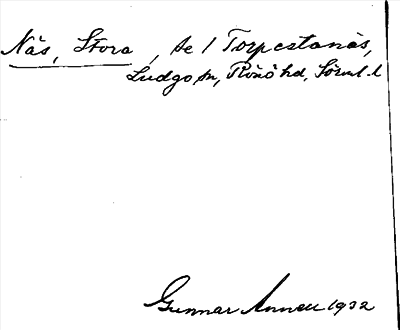 Näs, Stora, se 1 Torpestanäs,
Ludgo sn, Rönö hd, Sörml. l
Gunnar Annell 1932